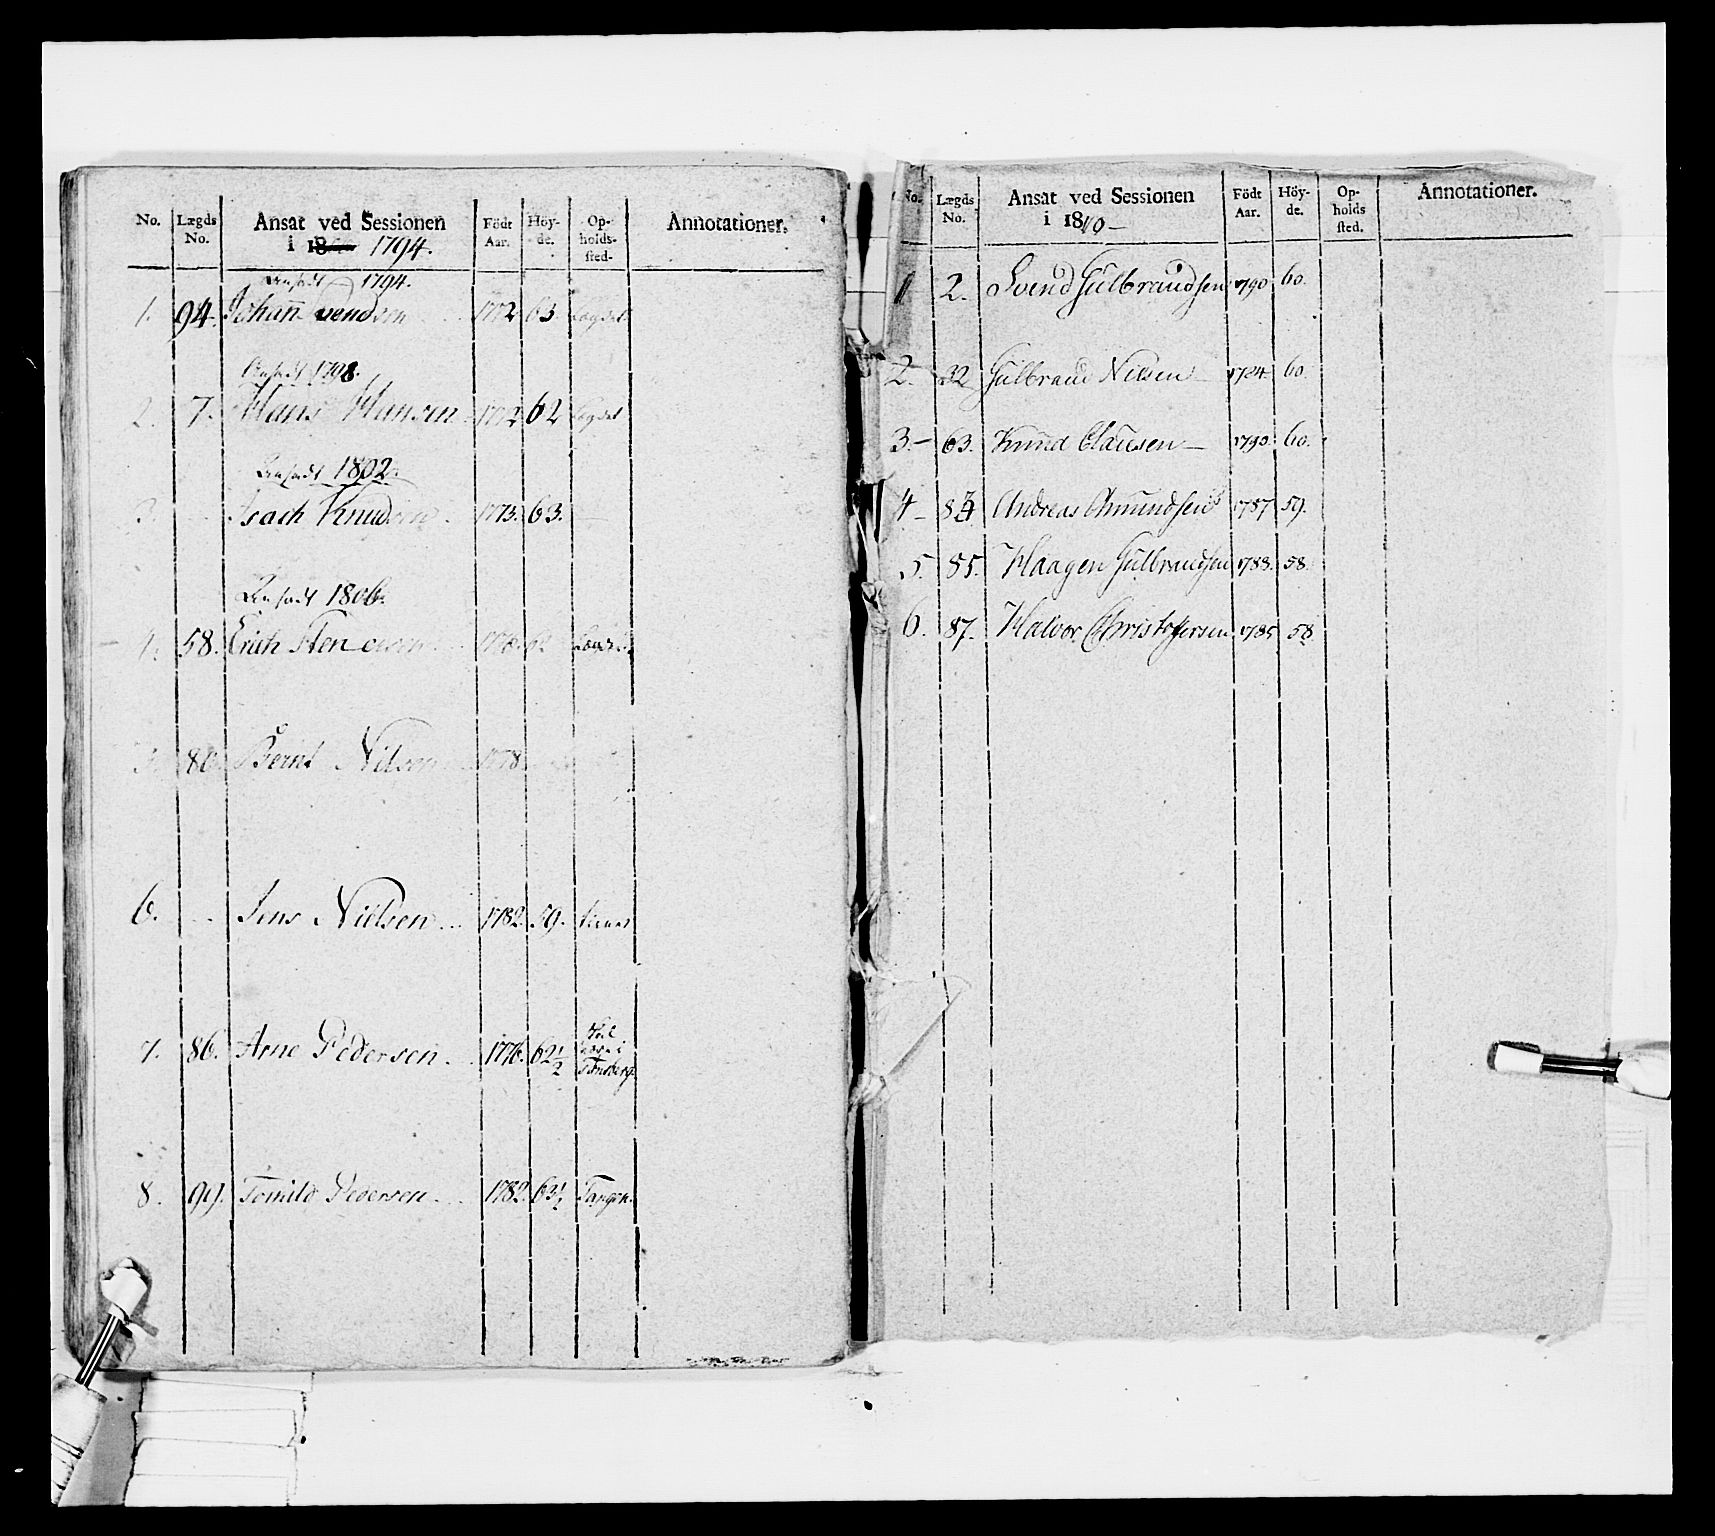 No. Lægds No. Ansat ved Sessionen i 18 1794. Födt Aar. Höy-de. Op-holds-sted. Annotationer.
Ansadt 1794.
1. 94. Johan Svendsen 1772 63. Lægdet
Ansadt 1798.
2. 7. Hans Hansen 62 Lægdet
Ansadt 1802.
3. Isach Knudsen. 1773. 63.
Ansadt 1806.
4. 58. Erich 62 Lægdet
5. 86. Bernt Nilsen 1778.
6. Jens Nielsen 1782. 59.
7. 86. Arne Pedersen. 1776. 62 1/2 Tønsberg
8. 99. Tomild Pedersen 1782. 63 1/2 Tangen.
No. Lægds No. Ansat ved Sessionen i 1810 Födt Aar. Höy-de. Op-holds sted. Annotationer.
1 2. Svend Gulbrandsen 1790 60.
2. 32 Gulbrand Nilsen 1784 60.
3. 63. Knud Clausen 1790. 60.
4 84 Andreas Amundsen 1787 59.
5. 85. Haagen Gulbrandsen 1788. 58.
6. 87. Halvor Christofersen 1785 58